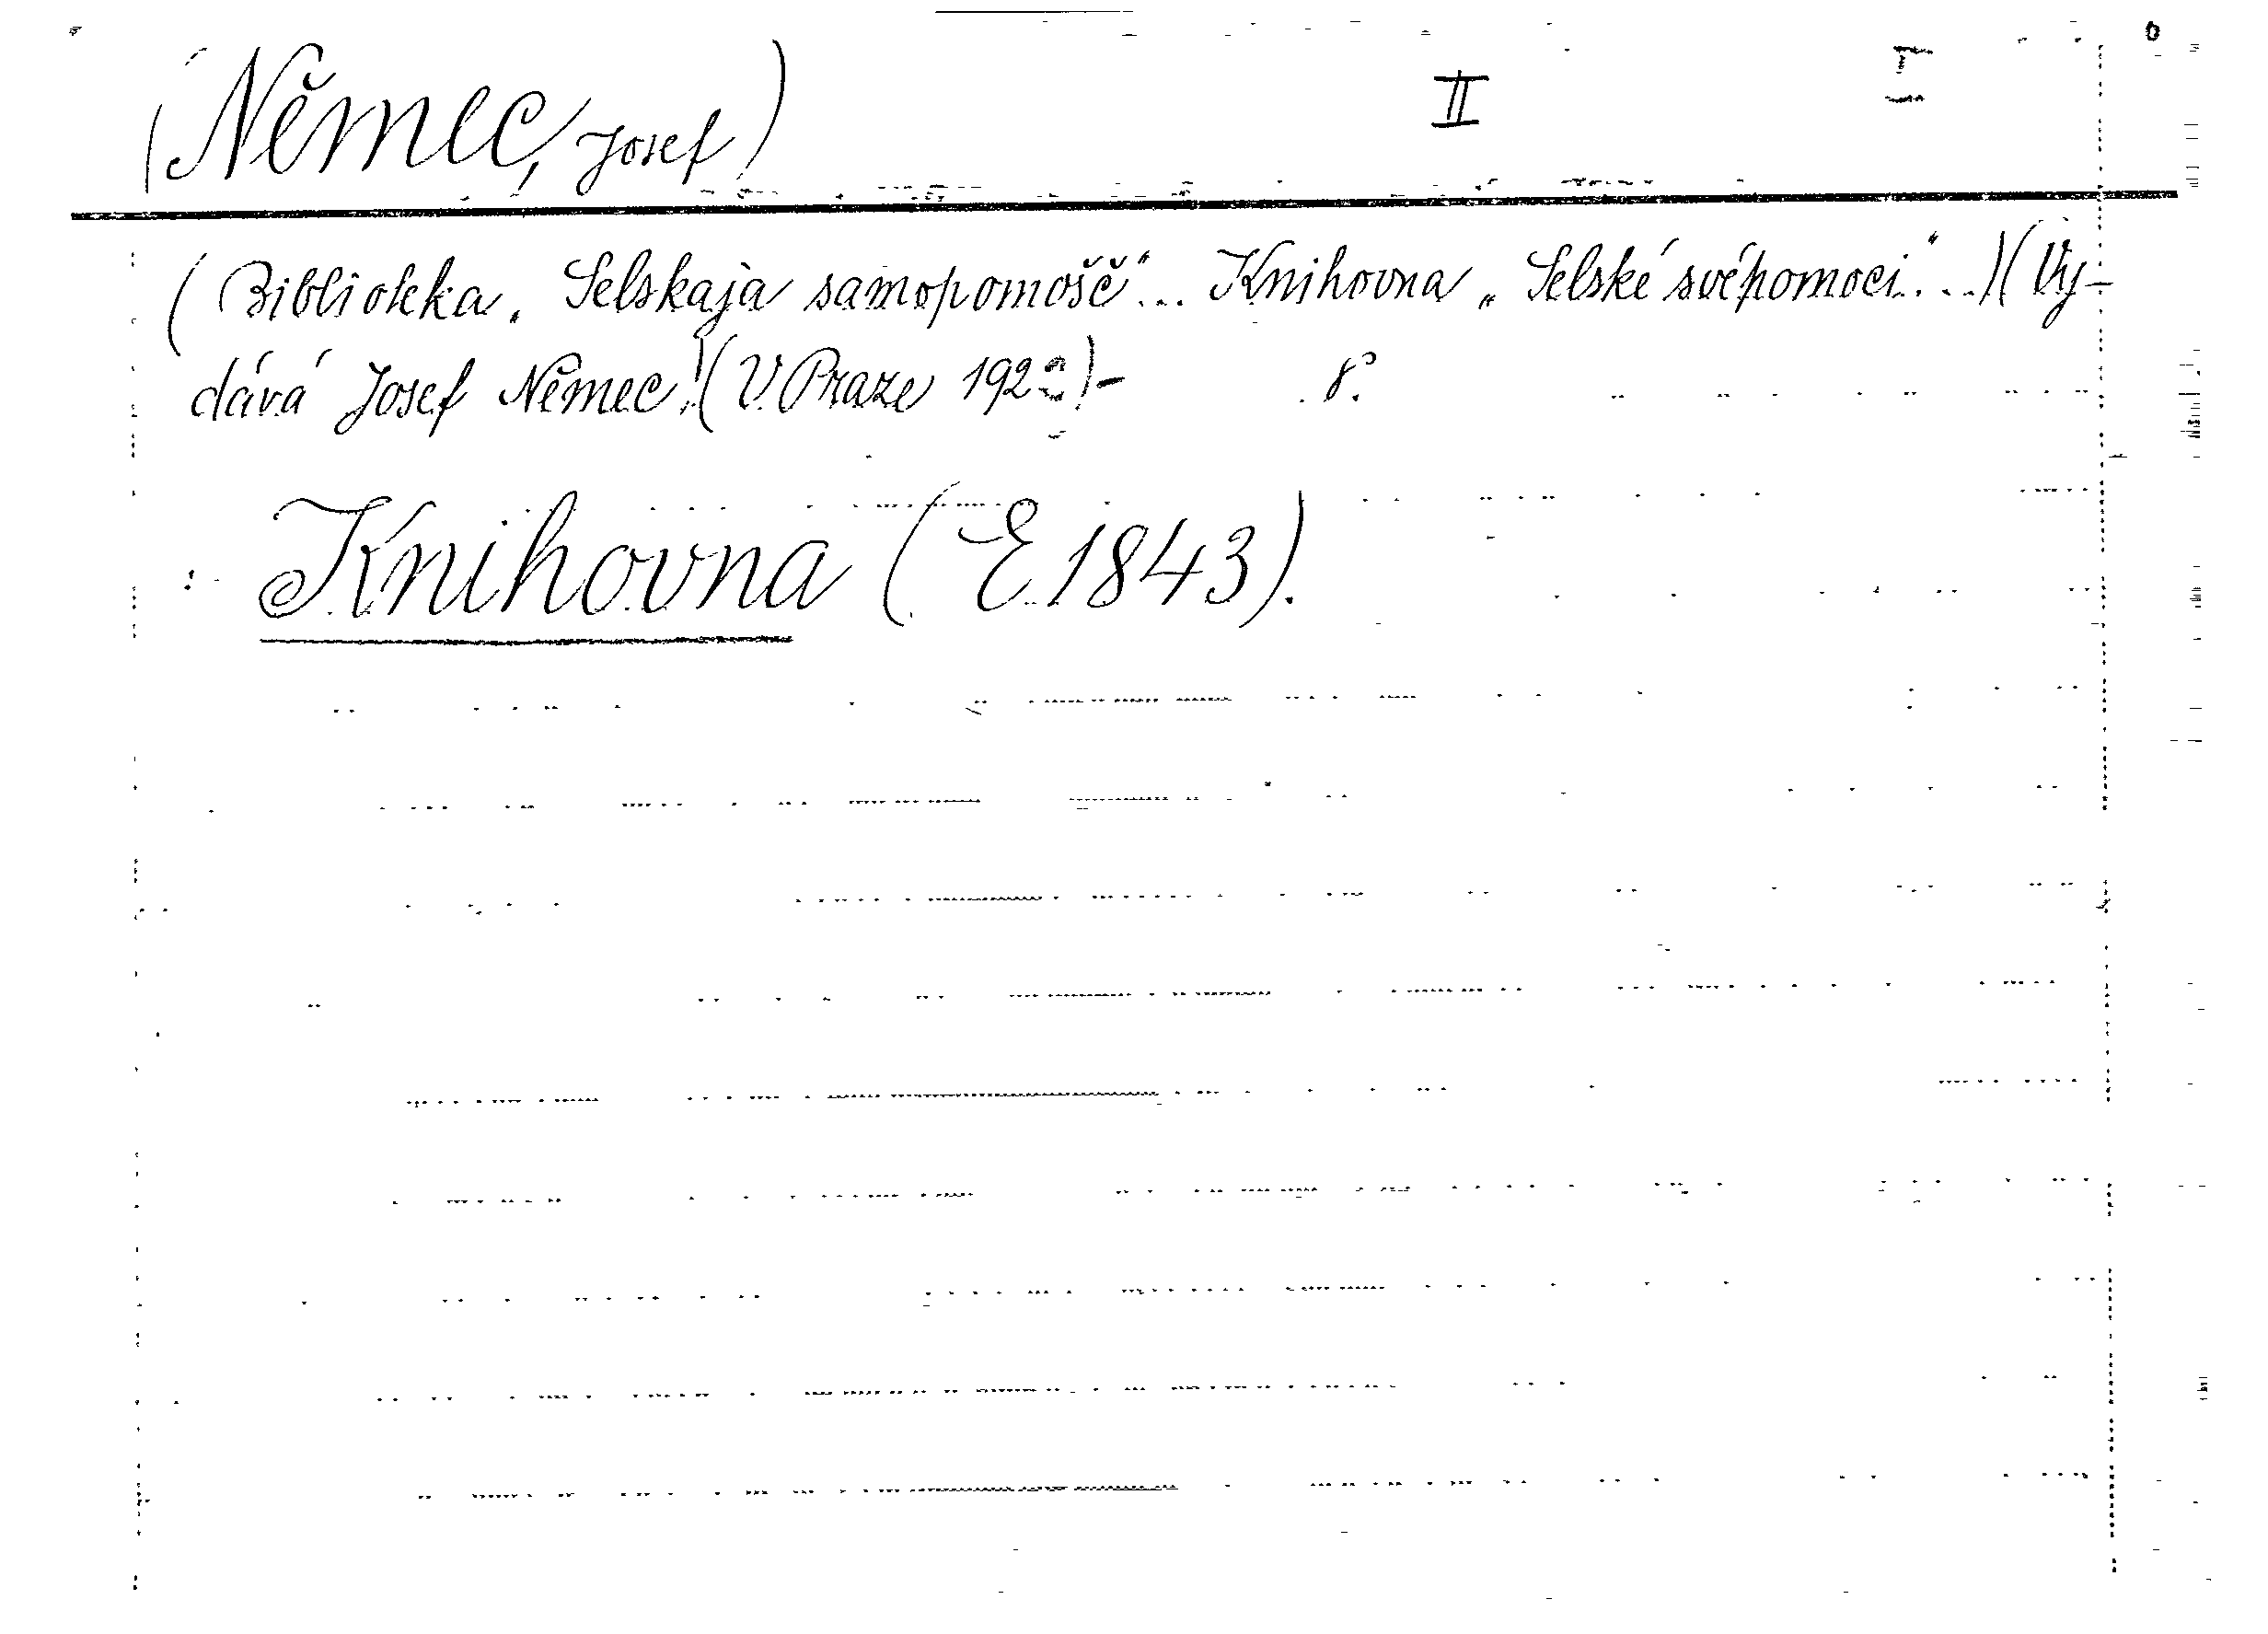 (Němec, Josef) II
(Biblioteka „Selskaja samopomošč"... Knihovna „Selské svépomoci"...)(Vy-
dává Josef Němec.)(V Praze )- 8°.
Knihovna (E 1843).